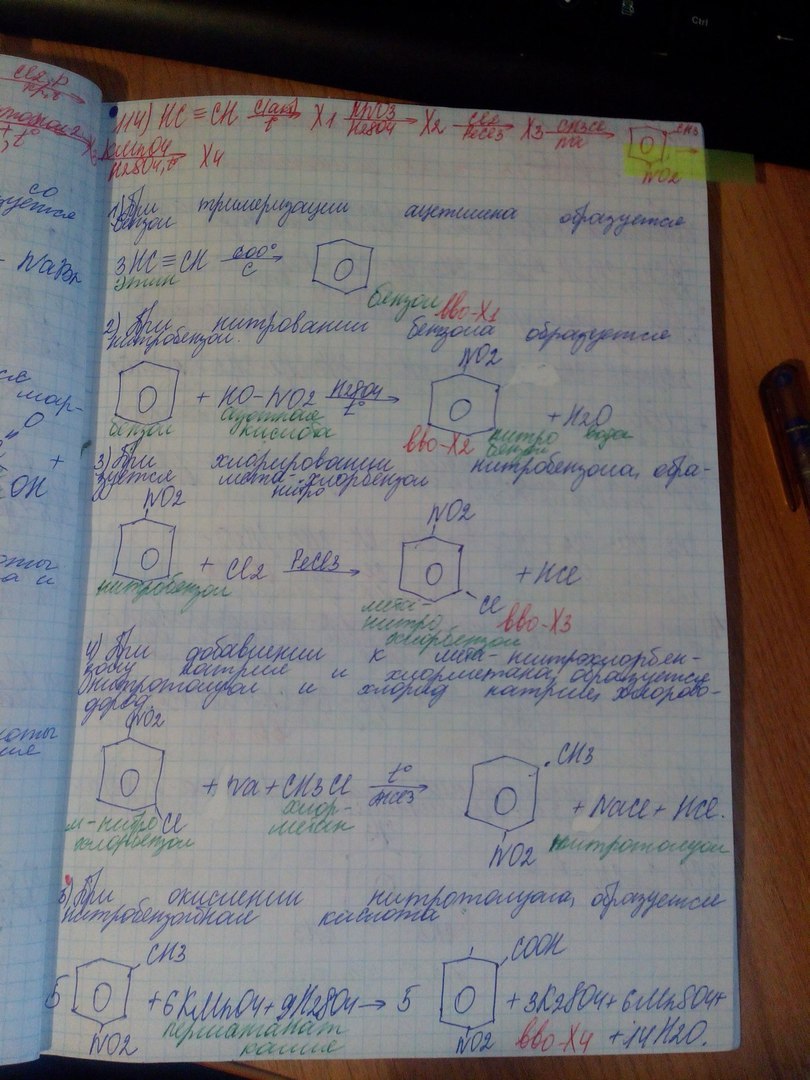 Cl2, P
114) HC≡CH C(акт) t X1 HNO3 H2SO4 X2 Cl2 FeCl3 X3 CH3Cl Na CH3
NO2
KMnO4 H2SO4, t° X4
1) При тримеризации ацетилена образуется
бензол
3HC≡CH 600° C
этин
бензол вво-X1
2) При нитровании бензола образуется
нитробензол.
NO2
+ HO-NO2 H2SO4 t° + H2O
бензол азотная кислота вво-X2 нитро бензол вода
3) При хлорировании нитробензола, обра-
зуется мета-хлорбензол
нитро
NO2 NO2
+ Cl2 FeCl3 + HCl
Cl
нитробензол мета-нитро хлорбензол вво-X3
4) При добавлении к мета-нитрохлорбен-
золу натрия и хлорметана, образуется
нитротолуол и хлорид натрия, хлорово-
дород.
NO2
CH3
+ Na + CH3Cl t° + NaCl + HCl.
Cl
NO2
м-нитро хлорбензол хлор-метан нитротолуол
5) При окислении нитротолуола, образуется
нитробензойная кислота
CH3 COOH
5 + 6KMnO4 + 9H2SO4 → 5 + 3K2SO4 + 6MnSO4 +
NO2 перманганат калия NO2 вво-X4 + 14H2O.
NaBr
мар-
O
OH
Ctrl